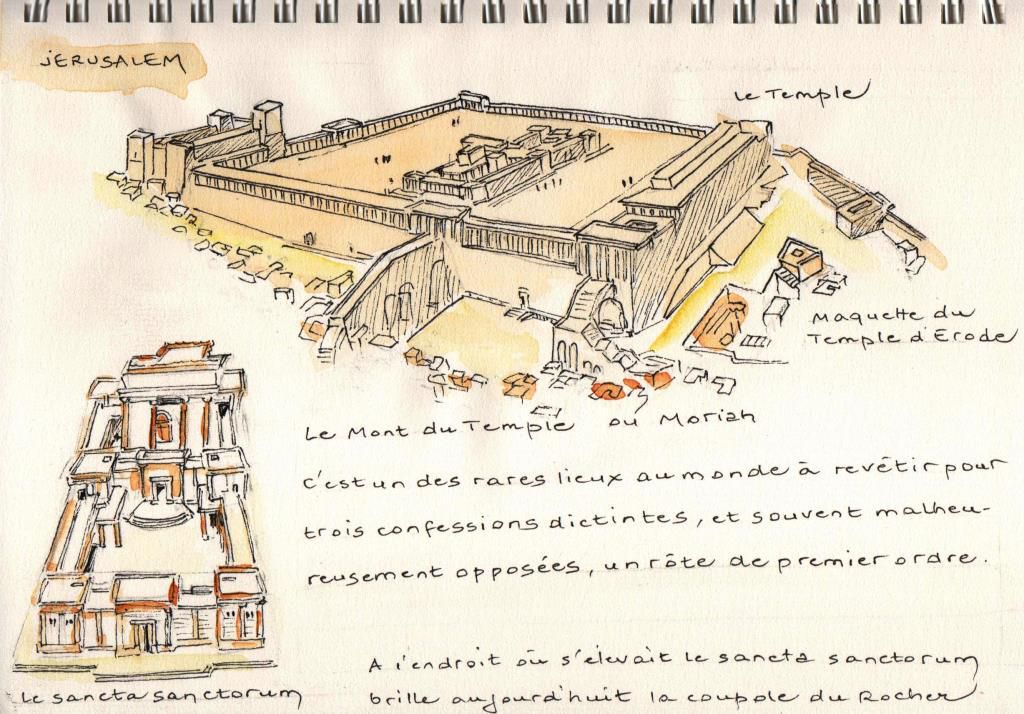 JERUSALEM
Le Temple
Maquette du
Temple d'Erode
Le Mont du Temple ou Moriah
C'est un des rares lieux au monde à revêtir pour
trois confessions dictintes, et souvent malheu-
reusement opposées, un rôte de premier ordre.
A l'endroit où s'elevait le sancta sanctorum
brille aujourd'huit la coupole du Rocher
Le sancta sanctorum